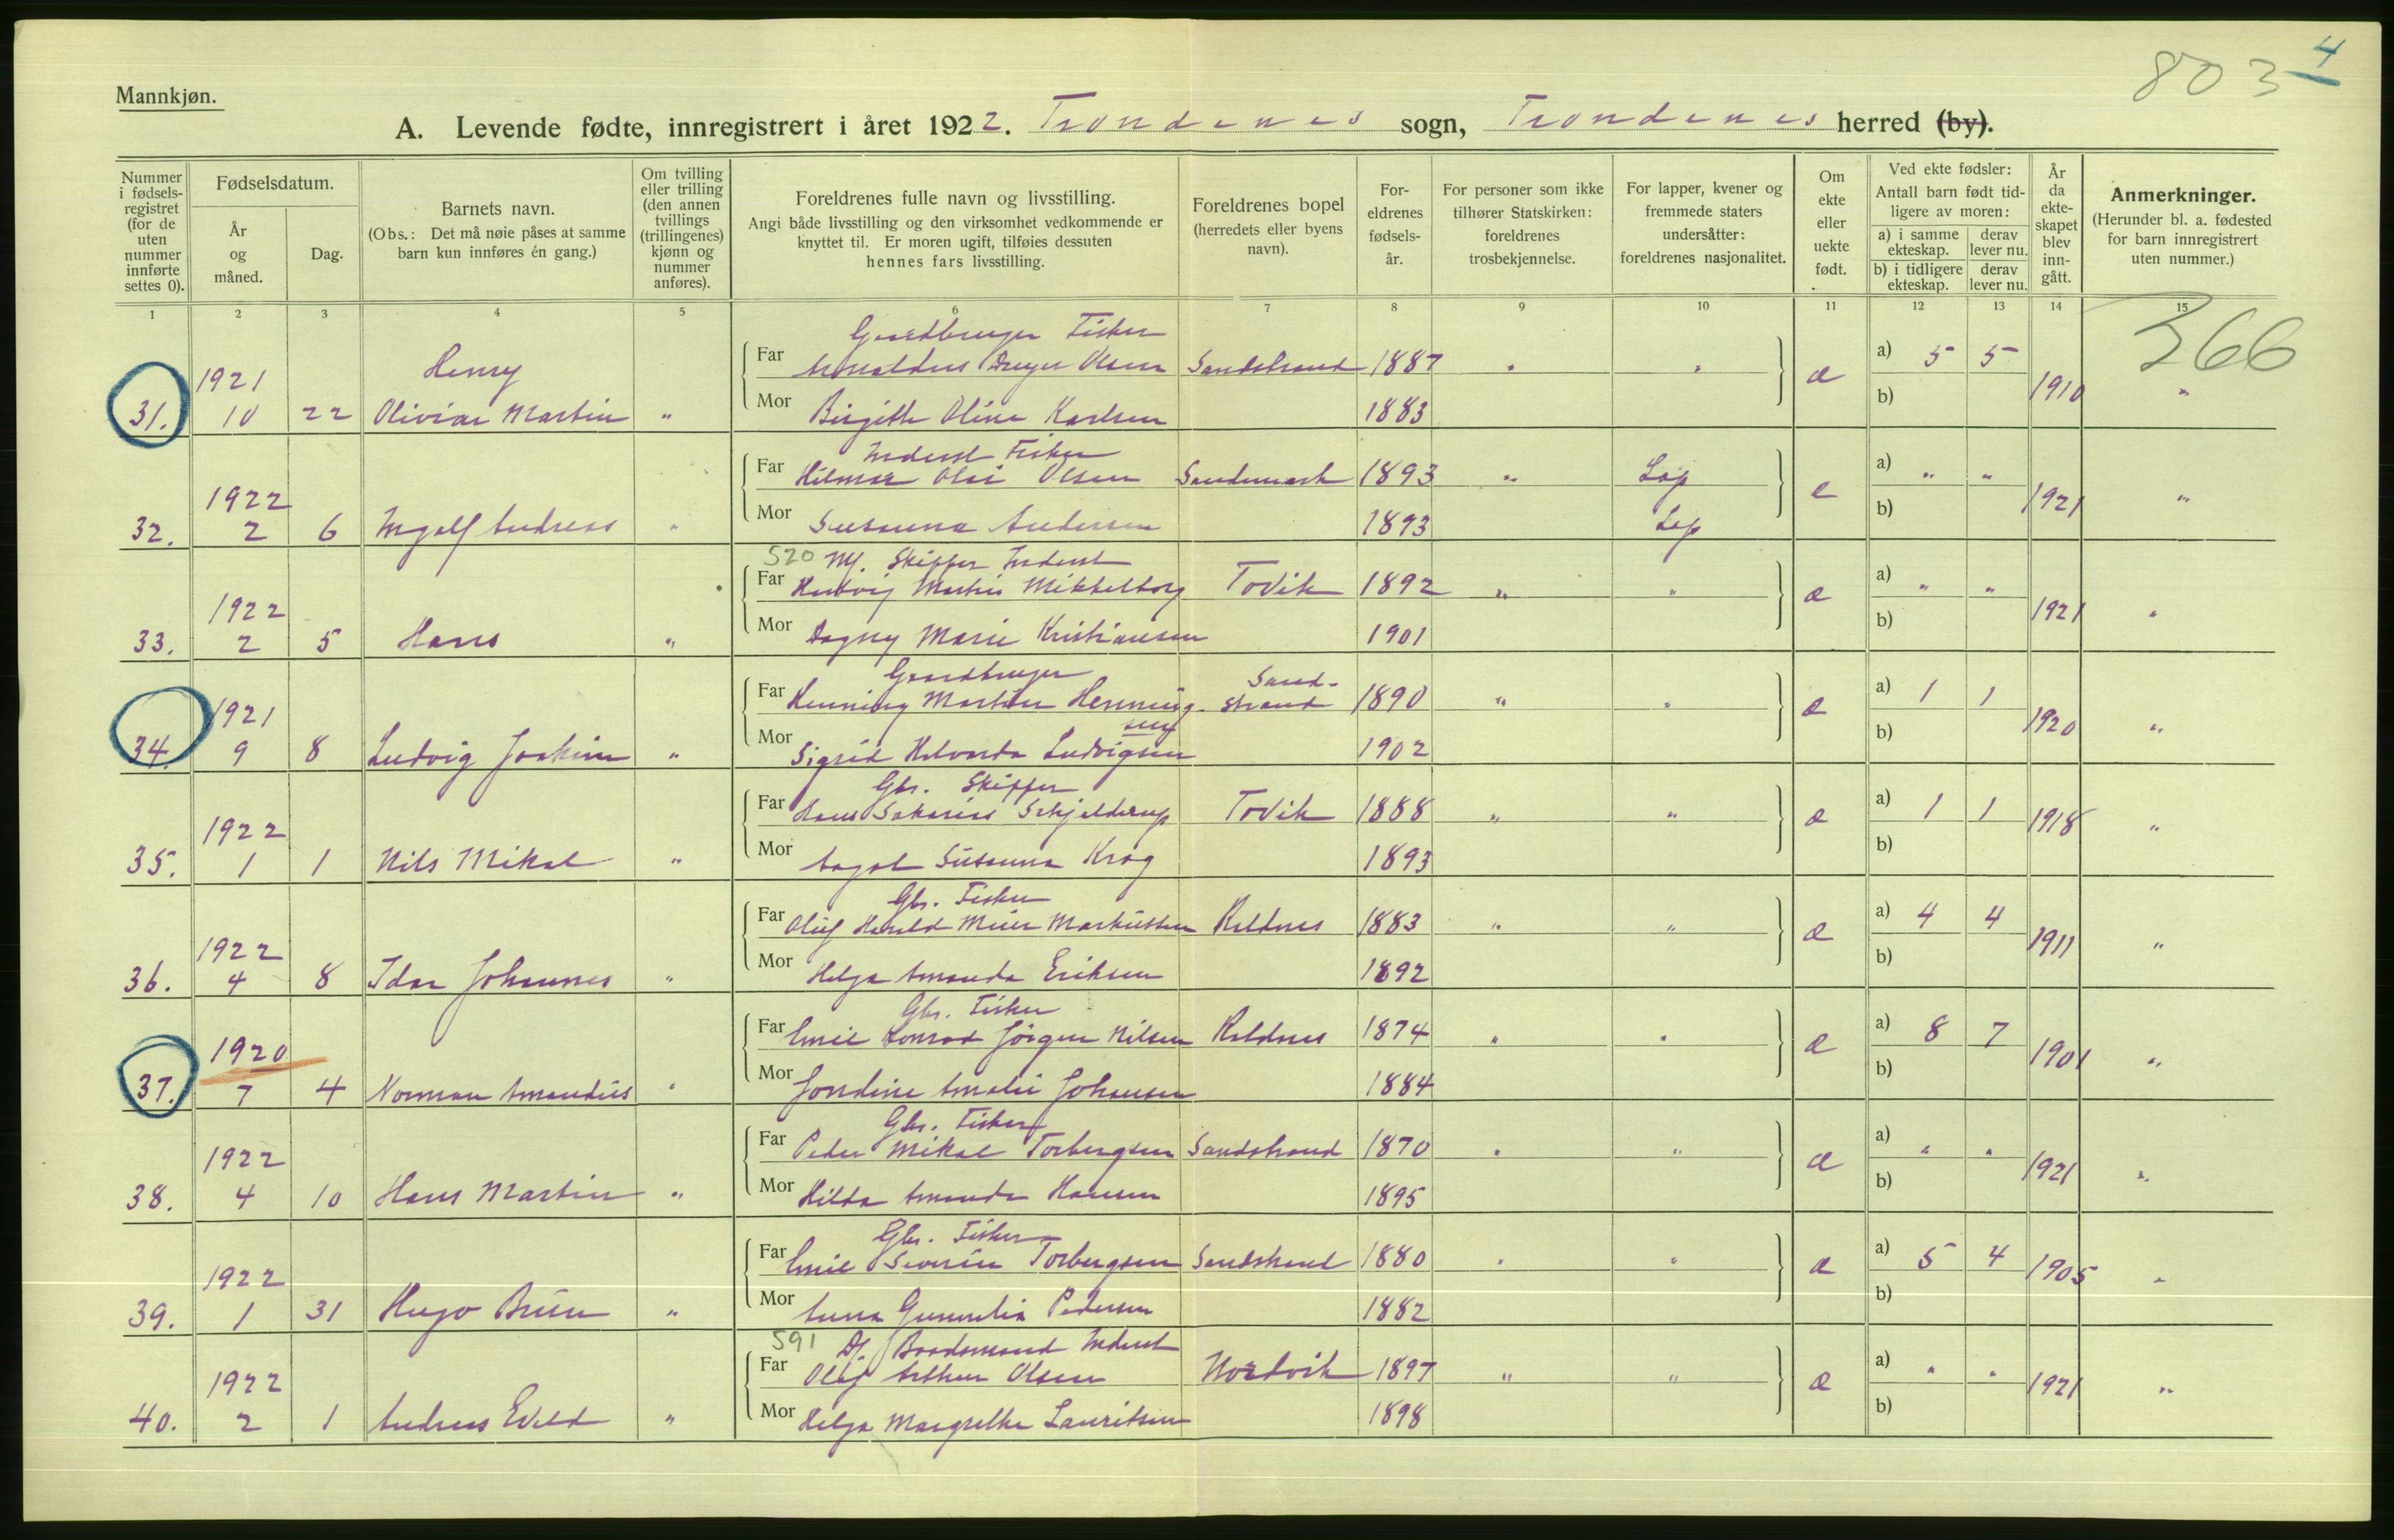 803 4
Mannkjøn.
A. Levende fødte, innregistrert i året 1922. Trondenes sogn, Trondenes herred (by).
Nummer i fødsels-registret (for de uten nummer innførte settes 0).
Fødselsdatum.
År og måned.
Dag.
Barnets navn.
(Obs.: Det må nøie påses at samme barn kun innføres én gang.)
Om tvilling eller trilling (den annen tvillings (trillingenes) kjønn og nummer anføres).
Foreldrenes fulle navn og livsstilling.
Angi både livsstilling og den virksomhet vedkommende er knyttet til. Er moren ugift, tilføies dessuten hennes fars livsstilling.
Foreldrenes bopel (herredets eller byens navn).
For-eldrenes fødsels-år.
For personer som ikke tilhører Statskirken: foreldrenes trosbekjennelse.
For lapper, kvener og fremmede staters undersåtter: foreldrenes nasjonalitet.
Om ekte eller uekte født.
Ved ekte fødsler: Antall barn født tid-ligere av moren:
a) i samme ekteskap. derav lever nu.
b) i tidligere ekteskap. derav lever nu.
År da ekte-skapet blev inn-gått.
Anmerkninger.
(Herunder bl. a. fødested for barn innregistrert uten nummer.)
1 2 3 4 5 6 7 8 9 10 11 12 13 14 15
366
Gaardbruger Fisker
1921 Henry Far Dreyer Olsen Sandstrand 1887 " " a) 5 5
31. 10 22 Oliviar Martin " Mor Birgitte Oline Karlsen 1883 æ b) 1910 "
Inderst Fisker
1922 Far Hilmar Olai Olsen Sandemark 1893 " Lap a) " "
32. 2 6 Ingolf Andreas " Mor Susanna Andersen 1893 Lap e b) 1921 "
520 Mf. Skipper Inderst
1922 Far Hartvig Martin Mikkelborg Tovik 1892 " " a) " "
33. 2 5 Hans " Mor Dagny Marie Kristiansen 1901 æ b) 1921 "
Gaardbruger
1921 Far Henning Martin Henning-sen Sand-strand 1890 " " a) 1 1
34. 9 8 Ludvig Joakim " Mor Sigrid Ludvigsen 1902 æ b) 1920 "
Gbr. Skipper
1922 Far Hans Sakarias Schjelderup Tovik 1888 " " a) 1 1
35. 1 1 Nils Mikal " Mor Aagot Susanna Krog 1893 æ b) 1918 "
Gbr. Fisker
1922 Far Oluf Harald Meier Markussen Keldnes 1883 " " a) 4 4
36. 4 8 Idar Johannes " Mor Helga Amanda Eriksen 1892 æ b) 1911 "
Gbr. Fisker
1920 Far Emil Konrad Jörgen Nilsen Keldnes 1874 " " a) 8 7
37. 7 4 Norman Amandus " Mor Jordine Amalie Johansen 1884 æ b) 1901 "
Gbr. Fisker
1922 Far Peder Mikal Torbergsen Sandstrand 1870 " " a) " "
38. 4 10 Hans Martin " Mor Hilda Amanda Hansen 1895 æ b) 1921 "
Gbr. Fisker
1922 Far Emil Severin Torbergsen Sandstrand 1880 " " a) 5 4
39. 1 31 Hugo Brun " Mor Anna Pedersen 1882 æ b) 1905 "
591 Df. Baadsmand Inderst
1922 Far Olaf Arthur Olsen Nordvik 1897 " " a) " "
40. 2 1 Andreas Evald " Mor Helga Margrethe Lauritsen 1898 æ b) 1921 "